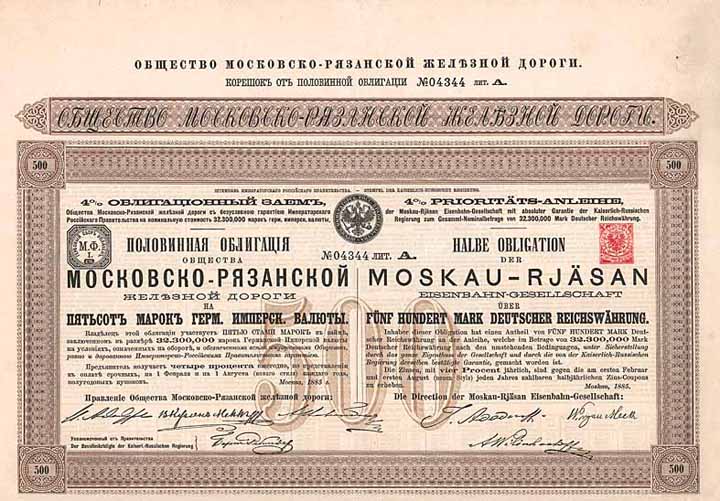 ОБЩЕСТВО МОСКОВСКО-РЯЗАНСКОЙ ЖЕЛѢЗНОЙ ДОРОГИ.
КОРЕШОКЪ ОТЪ ПОЛОВИННОЙ ОБЛИГАЦІИ №04344 ЛИТ. А.
ОБЩЕСТВО МОСКОВСКО-РЯЗАНСКОЙ ЖЕЛѢЗНОЙ ДОРОГИ.
500 500
ШТЕМПЕЛЬ ИМПЕРАТОРСКАГО РОССІЙСКАГО ПРАВИТЕЛЬСТВА. — STEMPEL DER KAISERLICH-RUSSISCHEN REGIERUNG.
4% ОБЛИГАЦІОННЫЙ ЗАЕМЪ,
Общества Московско-Рязанской желѣзной дороги съ безусловною гарантіею Императорскаго
Россійскаго Правительства на номинальную стоимость 32.300,000 марокъ герм. имперск. валюты.
4% PRIORITÄTS-ANLEIHE,
der Moskau-Rjäsan Eisenbahn-Gesellschaft mit absoluter Garantie der Kaiserlich-Russischen
Regierung zum Gesammt-Nominalbetrage von 32,300,000 Mark Deutscher Reichswährung.
М.Ф.
1.
ПОЛОВИННАЯ ОБЛИГАЦІЯ
ОБЩЕСТВА
МОСКОВСКО-РЯЗАНСКОЙ
ЖЕЛѢЗНОЙ ДОРОГИ
НА
ПЯТЬСОТЪ МАРОКЪ ГЕРМ. ИМПЕРСК. ВАЛЮТЫ.
№04344 ЛИТ. А.
HALBE OBLIGATION
DER
MOSKAU-RJÄSAN
EISENBAHN-GESELLSCHAFT
ÜBER
FÜNF HUNDERT MARK DEUTSCHER REICHSWÄHRUNG.
500
Владѣлецъ этой облигаціи участвуетъ ПЯТЬЮ СТАМИ МАРОКЪ въ займѣ,
заключенномъ въ размѣрѣ 32,300,000 марокъ Германской Имперской валюты
на условіяхъ, означенныхъ на оборотѣ, и обезпеченномъ всѣмъ достояніемъ Общества
и дарованною Императорско-Россійскимъ Правительствомъ гарантіею.
Предъявитель получаетъ четыре процента ежегодно, по представленіи
въ срокъ по 1 Февраля и по 1 Августа (новаго стиля) каждаго года,
полугодовыхъ купоновъ.
Москва, 1885 г.
Правленіе Общества Московско-Рязанской желѣзной дороги:
Inhaber dieser Obligation hat einen Antheil von FÜNF HUNDERT MARK Deut-
scher Reichswährung an der Anleihe, welche im Betrage von 32,300,000 Mark
Deutscher Reichswährung nach den umstehenden Bedingungen, unter Sicherstellung
durch das ganze Eigenthum der Gesellschaft und durch die von der Kaiserlich-Russischen
Regierung derselben bestellte Garantie, gemacht worden ist.
Die Zinsen, mit vier Procent jährlich, sind gegen die am ersten Februar
und ersten August (neuen Styls) jeden Jahres zahlbaren halbjährlichen Zins-Coupons
zu erheben.
Moskau, 1885.
Die Direction der Moskau-Rjäsan Eisenbahn-Gesellschaft:
Уполномоченный отъ Правительства
Der Bevollmächtigte der Kaiserl.-Russischen Regierung
500 500